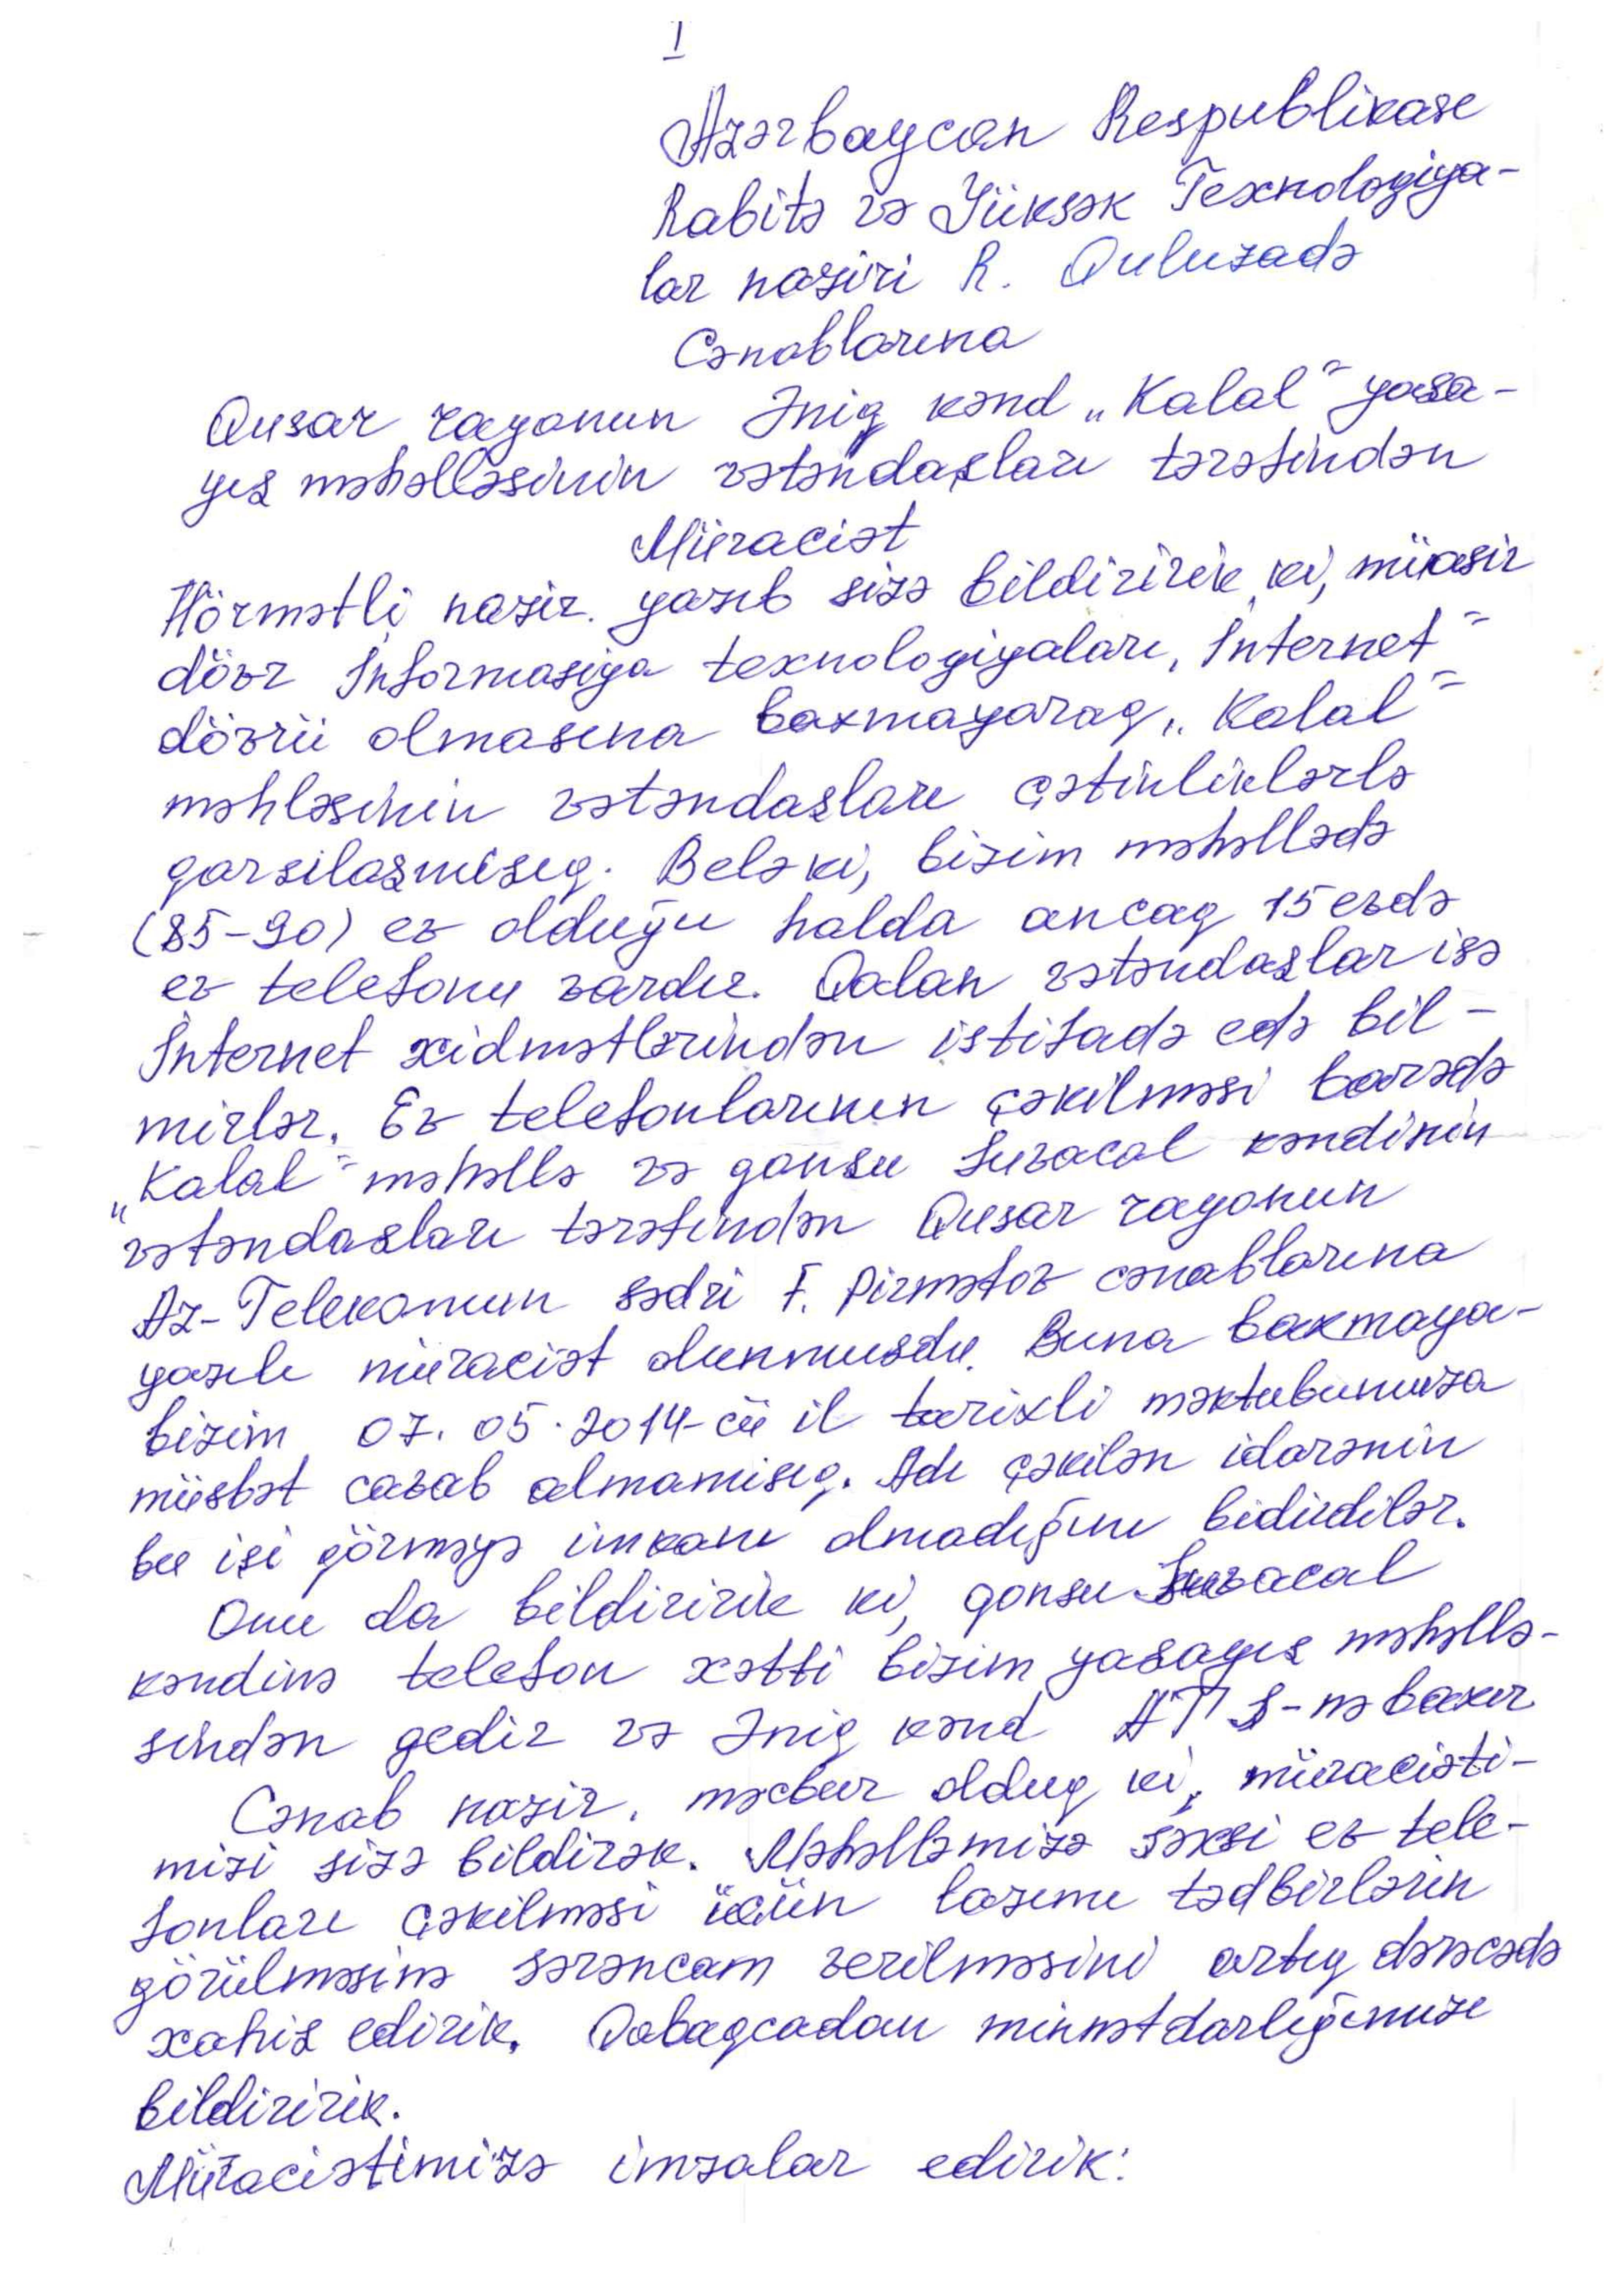 1
Azərbaycan Respublikası
Rabitə və Yüksək Texnologiya-
lar naziri R. Quluzadə
Cənablarına
Qusar rayonun Əniq kənd „Kalal“ yaşa-
yış məhəlləsinin vətəndaşları tərəfindən
Müraciət
Hörmətli nazir. yazıb sizə bildiririk ki, müasir
dövr İnformasiya texnologiyaları, İnternet“
dövrü olmasına baxmayaraq, „Kalal“
məhləsinin vətəndaşları çətinliklərlə
qarşılaşmışıq. Belə ki, bizim məhəllədə
(85-90) ev olduğu halda ancaq 15 evdə
ev telefonu vardır. Qalan vətəndaşlar isə
İnternet xidmətlərindən istifadə edə bil-
mirlər. Ev telefonlarının çəkilməsi barədə
„Kalal“ məhəllə və qonşu Suvacal kəndinin
vətəndaşları tərəfindən Qusar rayonun
Az-Telekomun sədri F. Pirmətov cənablarına
yazılı müraciət olunmuşdu. Buna baxmaya-
bizim 07.05.2014-cü il tarixli məktubumuza
müsbət cavab almamışıq. Adı çəkilən idarənin
bu işi görməyə imkanı olmadığını bidirdilər.
Onu da bildiririk ki, qonşu Suvacal
kəndinə telefon xətti bizim yaşayış məhəllə-
sindən gedir və Əniq kənd ATS-nə baxır
Cənab nazir, məcbur olduq ki, müraciəti-
mizi sizə bildirək. Məhəlləmizə şəxsi ev tele-
fonları çəkilməsi üçün lazımı tədbirlərin
görülməsinə sərəncam verilməsini artıq dərəcədə
xahiş edirik. Qabaqcadan minnətdarlığımızı
bildiririk.
Müraciətimizə imzalar edirik: